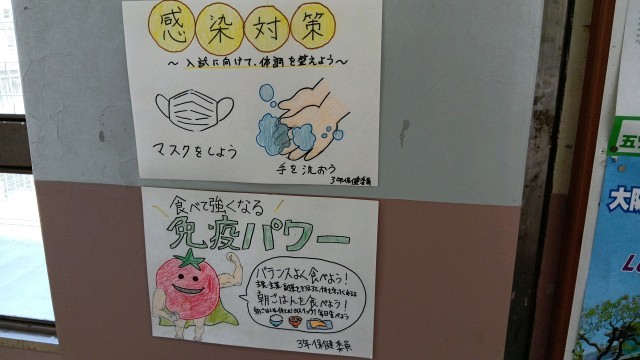 感染対策
～入試に向けて、体調を整えよう～
マスクをしよう
手を洗おう
3年保健委員
食べて強くなる
免疫パワー
バランスよく食べよう！
朝ごはんを食べよう！
3年保健委員
大阪